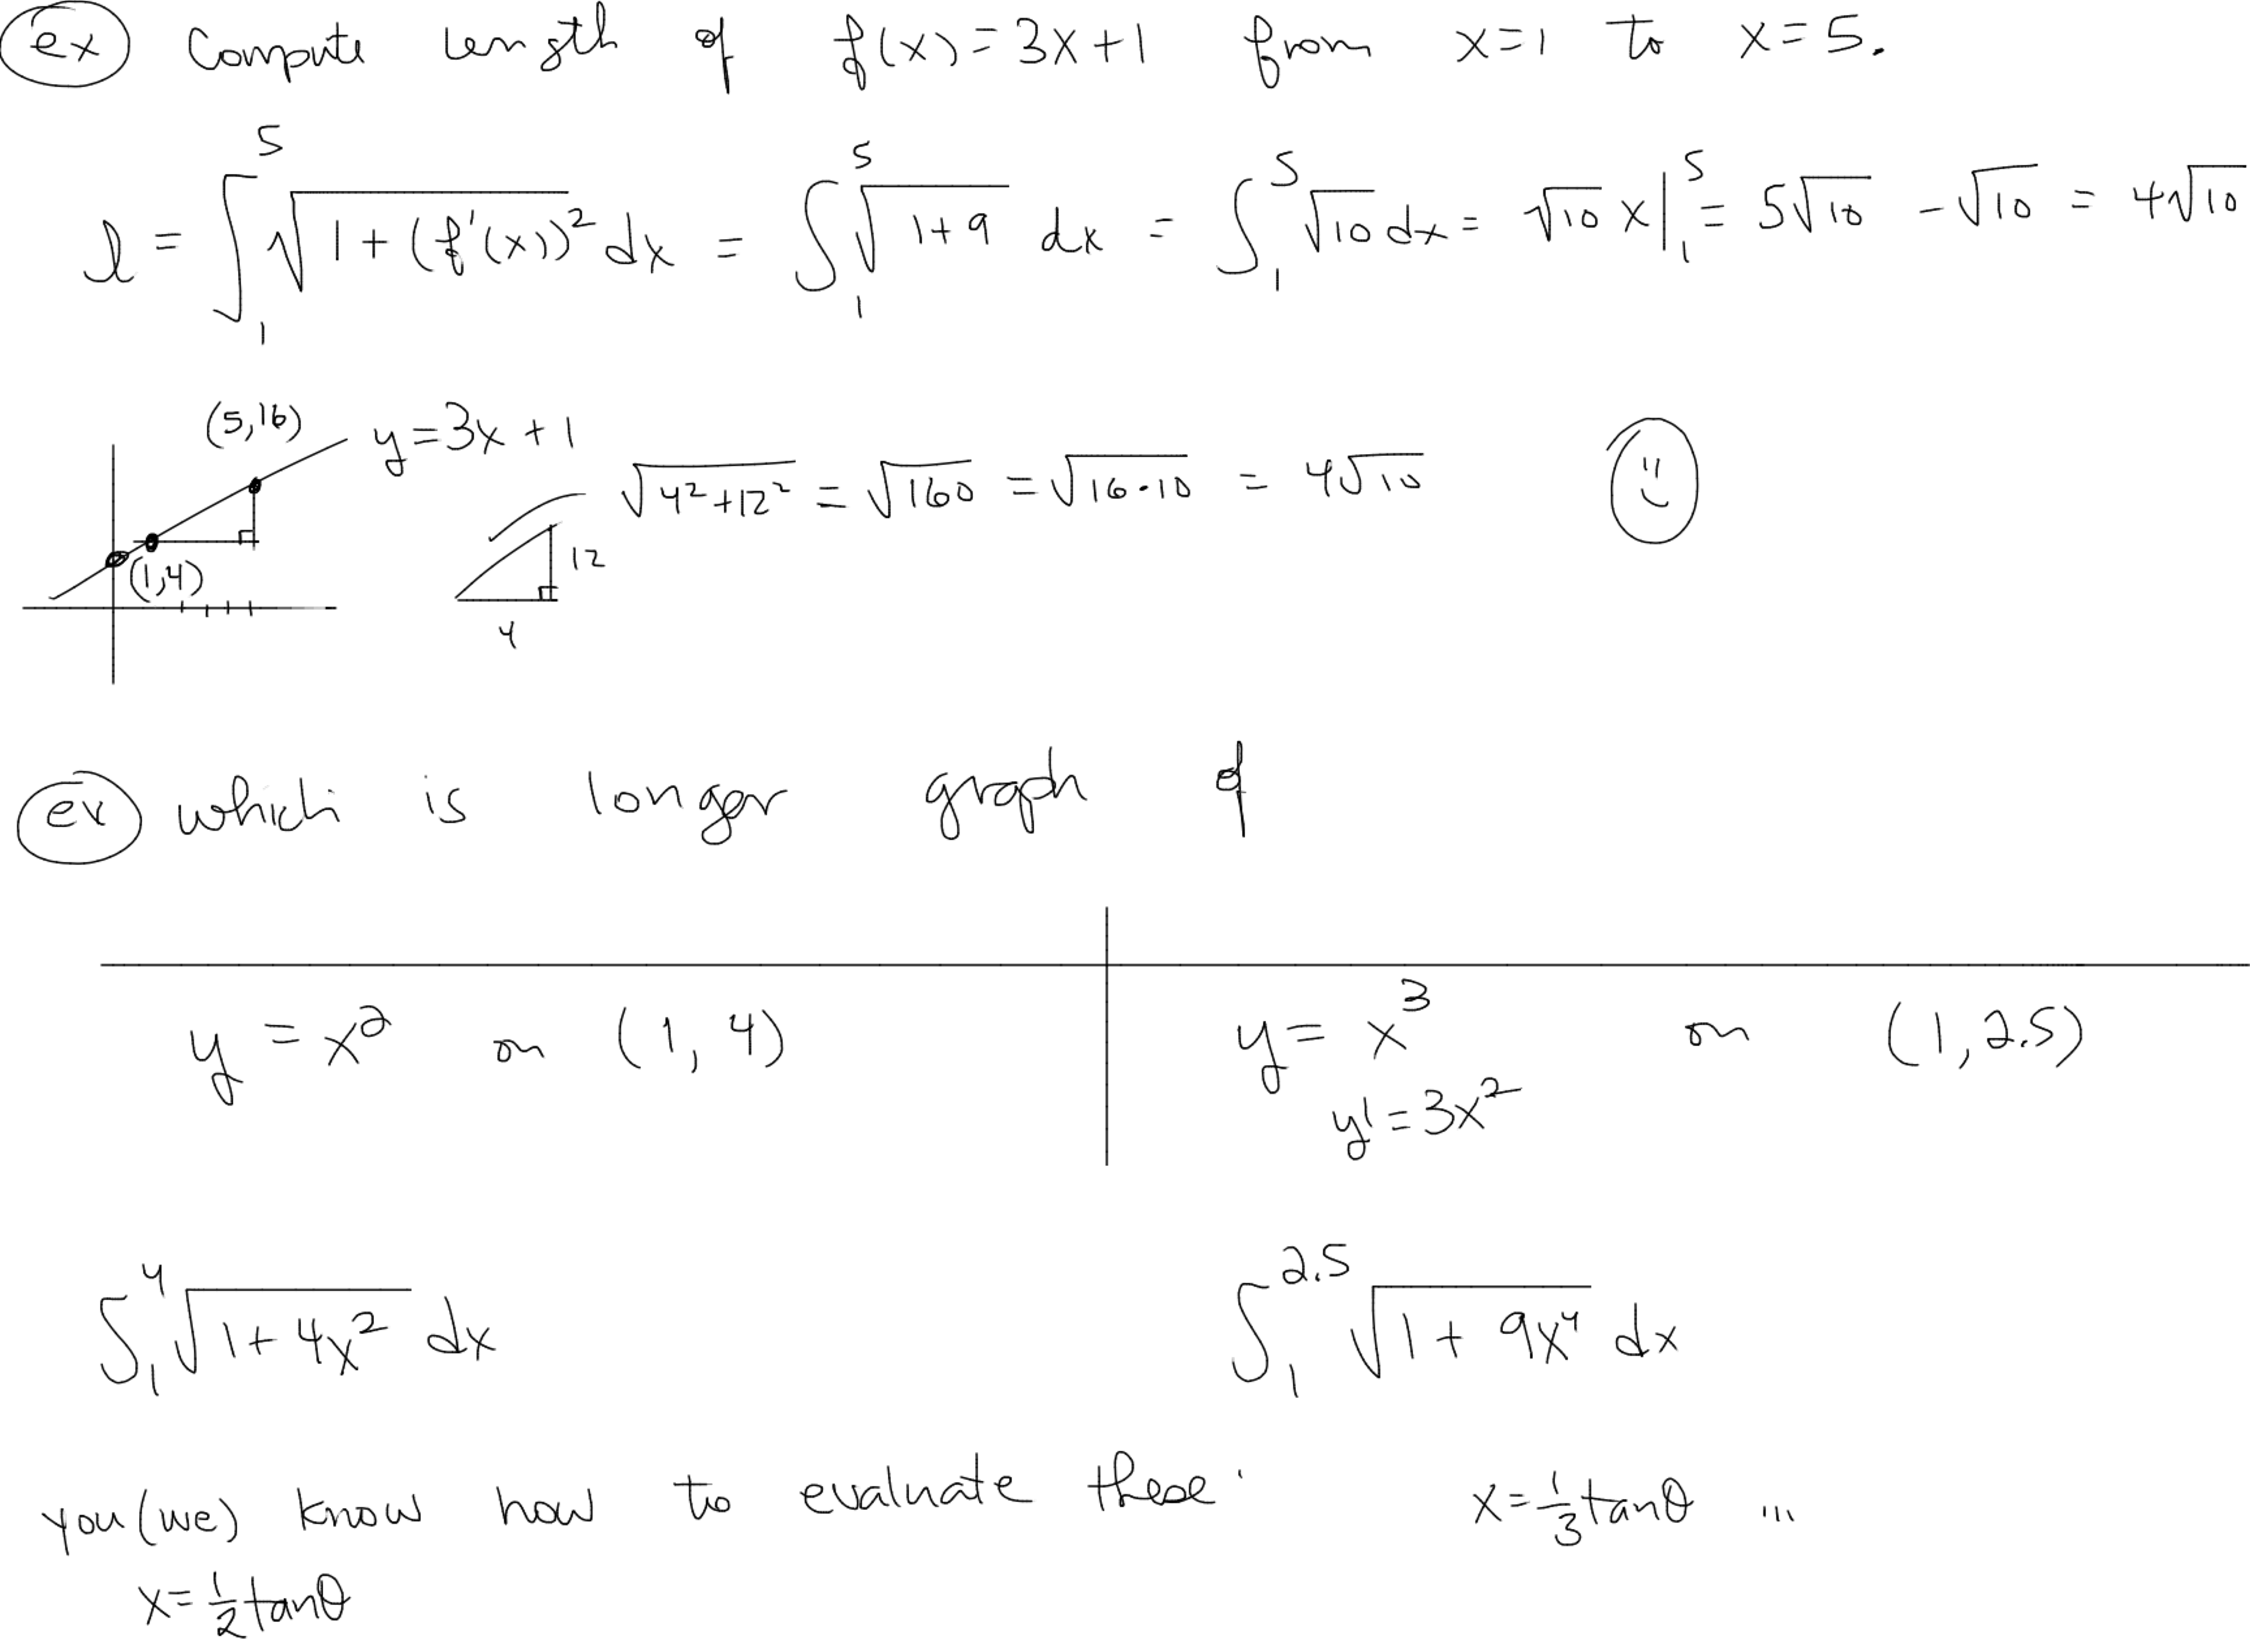 ex Compute length of f(x)=3x+1 from x=1 to x=5.
l = ∫₁⁵ √(1+(f'(x))²) dx = ∫₁⁵ √(1+9) dx = ∫₁⁵ √10 dx = √10 x|₁⁵ = 5√10 - √10 = 4√10
(5,16) y=3x+1
√(4²+12²) = √160 = √(16·10) = 4√10
12
(1,4)
4
ex which is longer graph of
y = x² on (1,4)
y = x³ on (1,2.5)
y' = 3x²
∫₁⁴ √(1+4x²) dx
∫₁^2.5 √(1+9x⁴) dx
you (we) know how to evaluate these. x=1/3 tanθ ...
x=1/2 tanθ